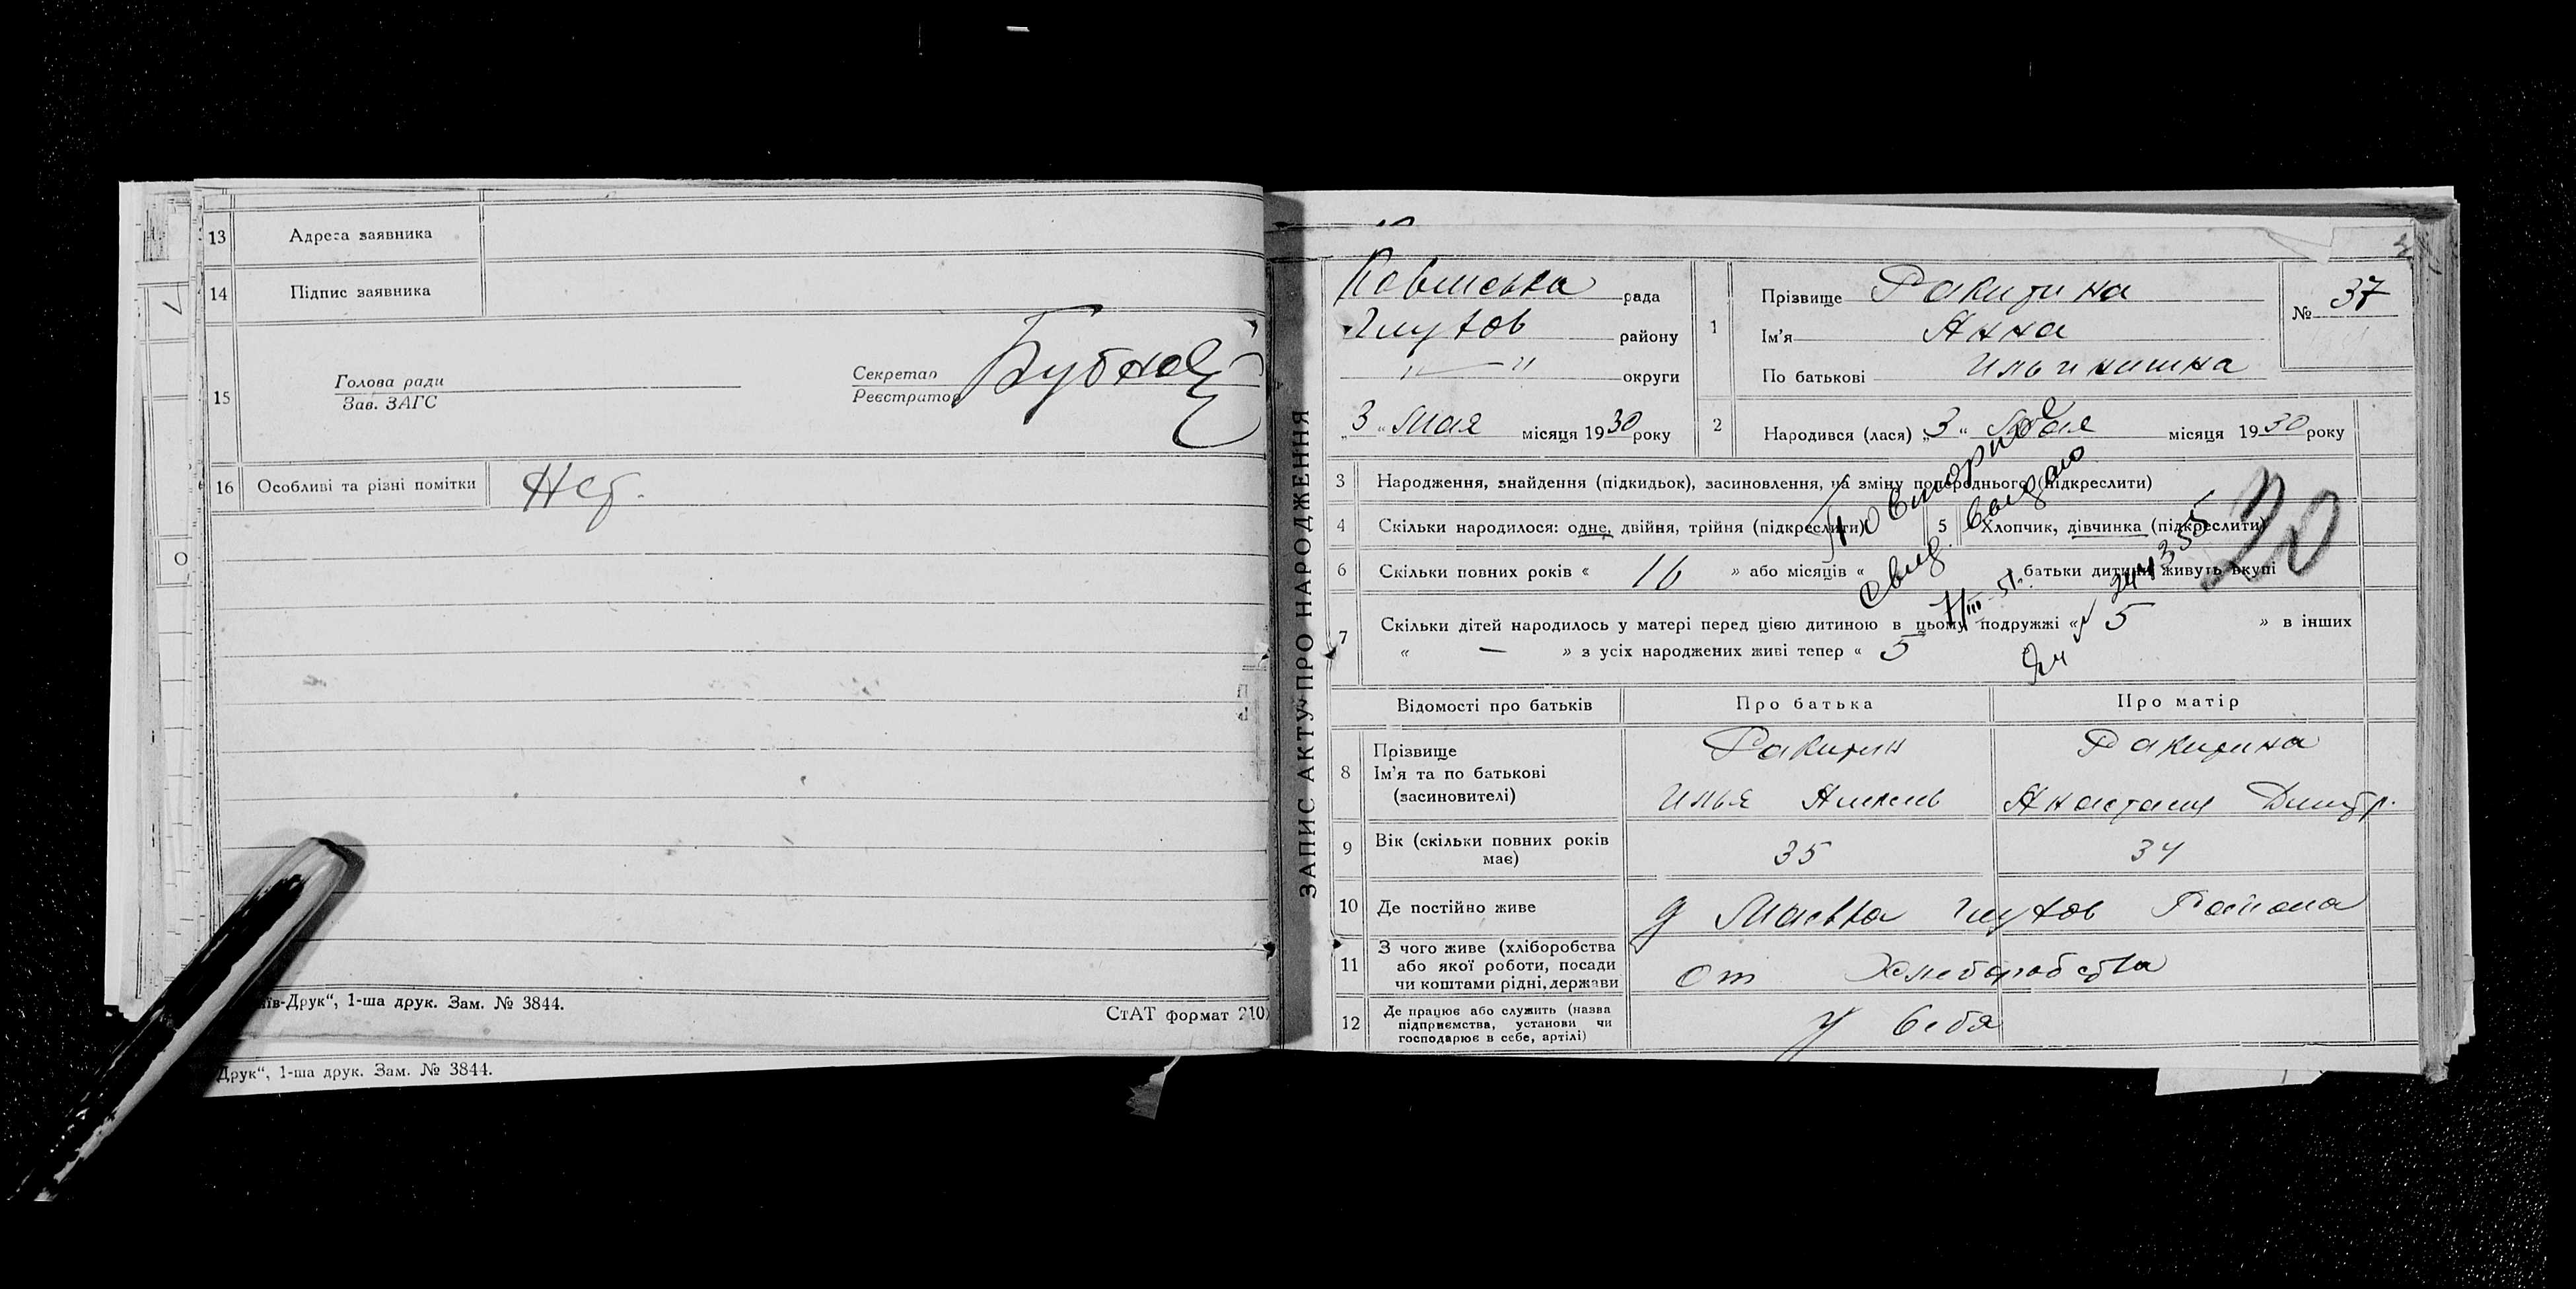 13 Адреса заявника
14 Підпис заявника
15 Голова ради
Зав. ЗАГС
Секретар
Реєстратор
Бубнов
16 Особливі та різні помітки Нет.
їв-Друк“, 1-ша друк. Зам. № 3844.
СтАТ формат 210
Друк“, 1-ша друк. Зам. № 3844.
ЗАПИС АКТУ ПРО НАРОДЖЕННЯ
рада
Глухов району
„ — “ округи
„3“ Мая місяця 1930 року
1 Прізвище Ракитина
Ім'я Анна
По батькові Ильинишна
№ 37
2 Народився (лася) „3“ Мая місяця 1930 року
3 Народження, знайдення (підкидьок), засиновлення, на зміну попереднього (підкреслити)
4 Скільки народилося: одне, двійня, трійня (підкреслити)
5 Хлопчик, дівчинка (підкреслити)
6 Скільки повних років « 16 » або місяців « батьки дитини живуть вкупі
7 Скільки дітей народилось у матері перед цією дитиною в цьому подружжі « 5 » в інших
« — » з усіх народжених живі тепер « 5
Повторное
свид. выдано
7/III-51г.
№ 244355
20
Відомості про батьків Про батька Про матір
8 Прізвище
Ім'я та по батькові
(засиновителі)
Ракитин Ракитина
Илья Анастасия Дмитр.
9 Вік (скільки повних років має) 35 34
10 Де постійно живе д Маевка Глухов Района
11 З чого живе (хліборобства
або якої роботи, посади
чи коштами рідні, держави
от Хлеборобства
12 Де працює або служить (назва
підприємства, установи чи
господарює в себе, артілі)
У себя